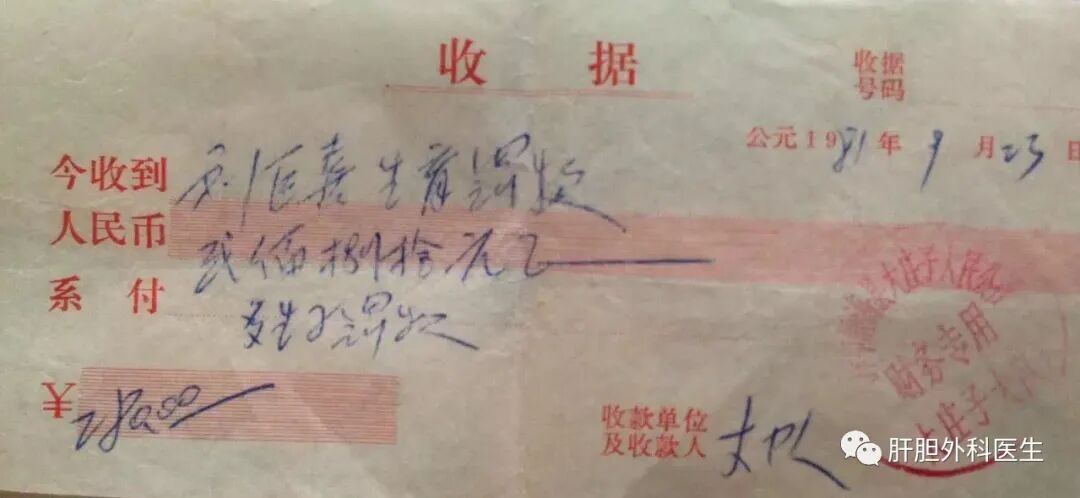 收据
收据
号码
公元1981年9月23日
今收到 刘臣嘉生育罚款
人民币 贰佰捌拾元
系付 多生孩罚款
¥280.00
收款单位
及收款人 大队
大庄子人民公
财务专用
大庄子大队
肝胆外科医生